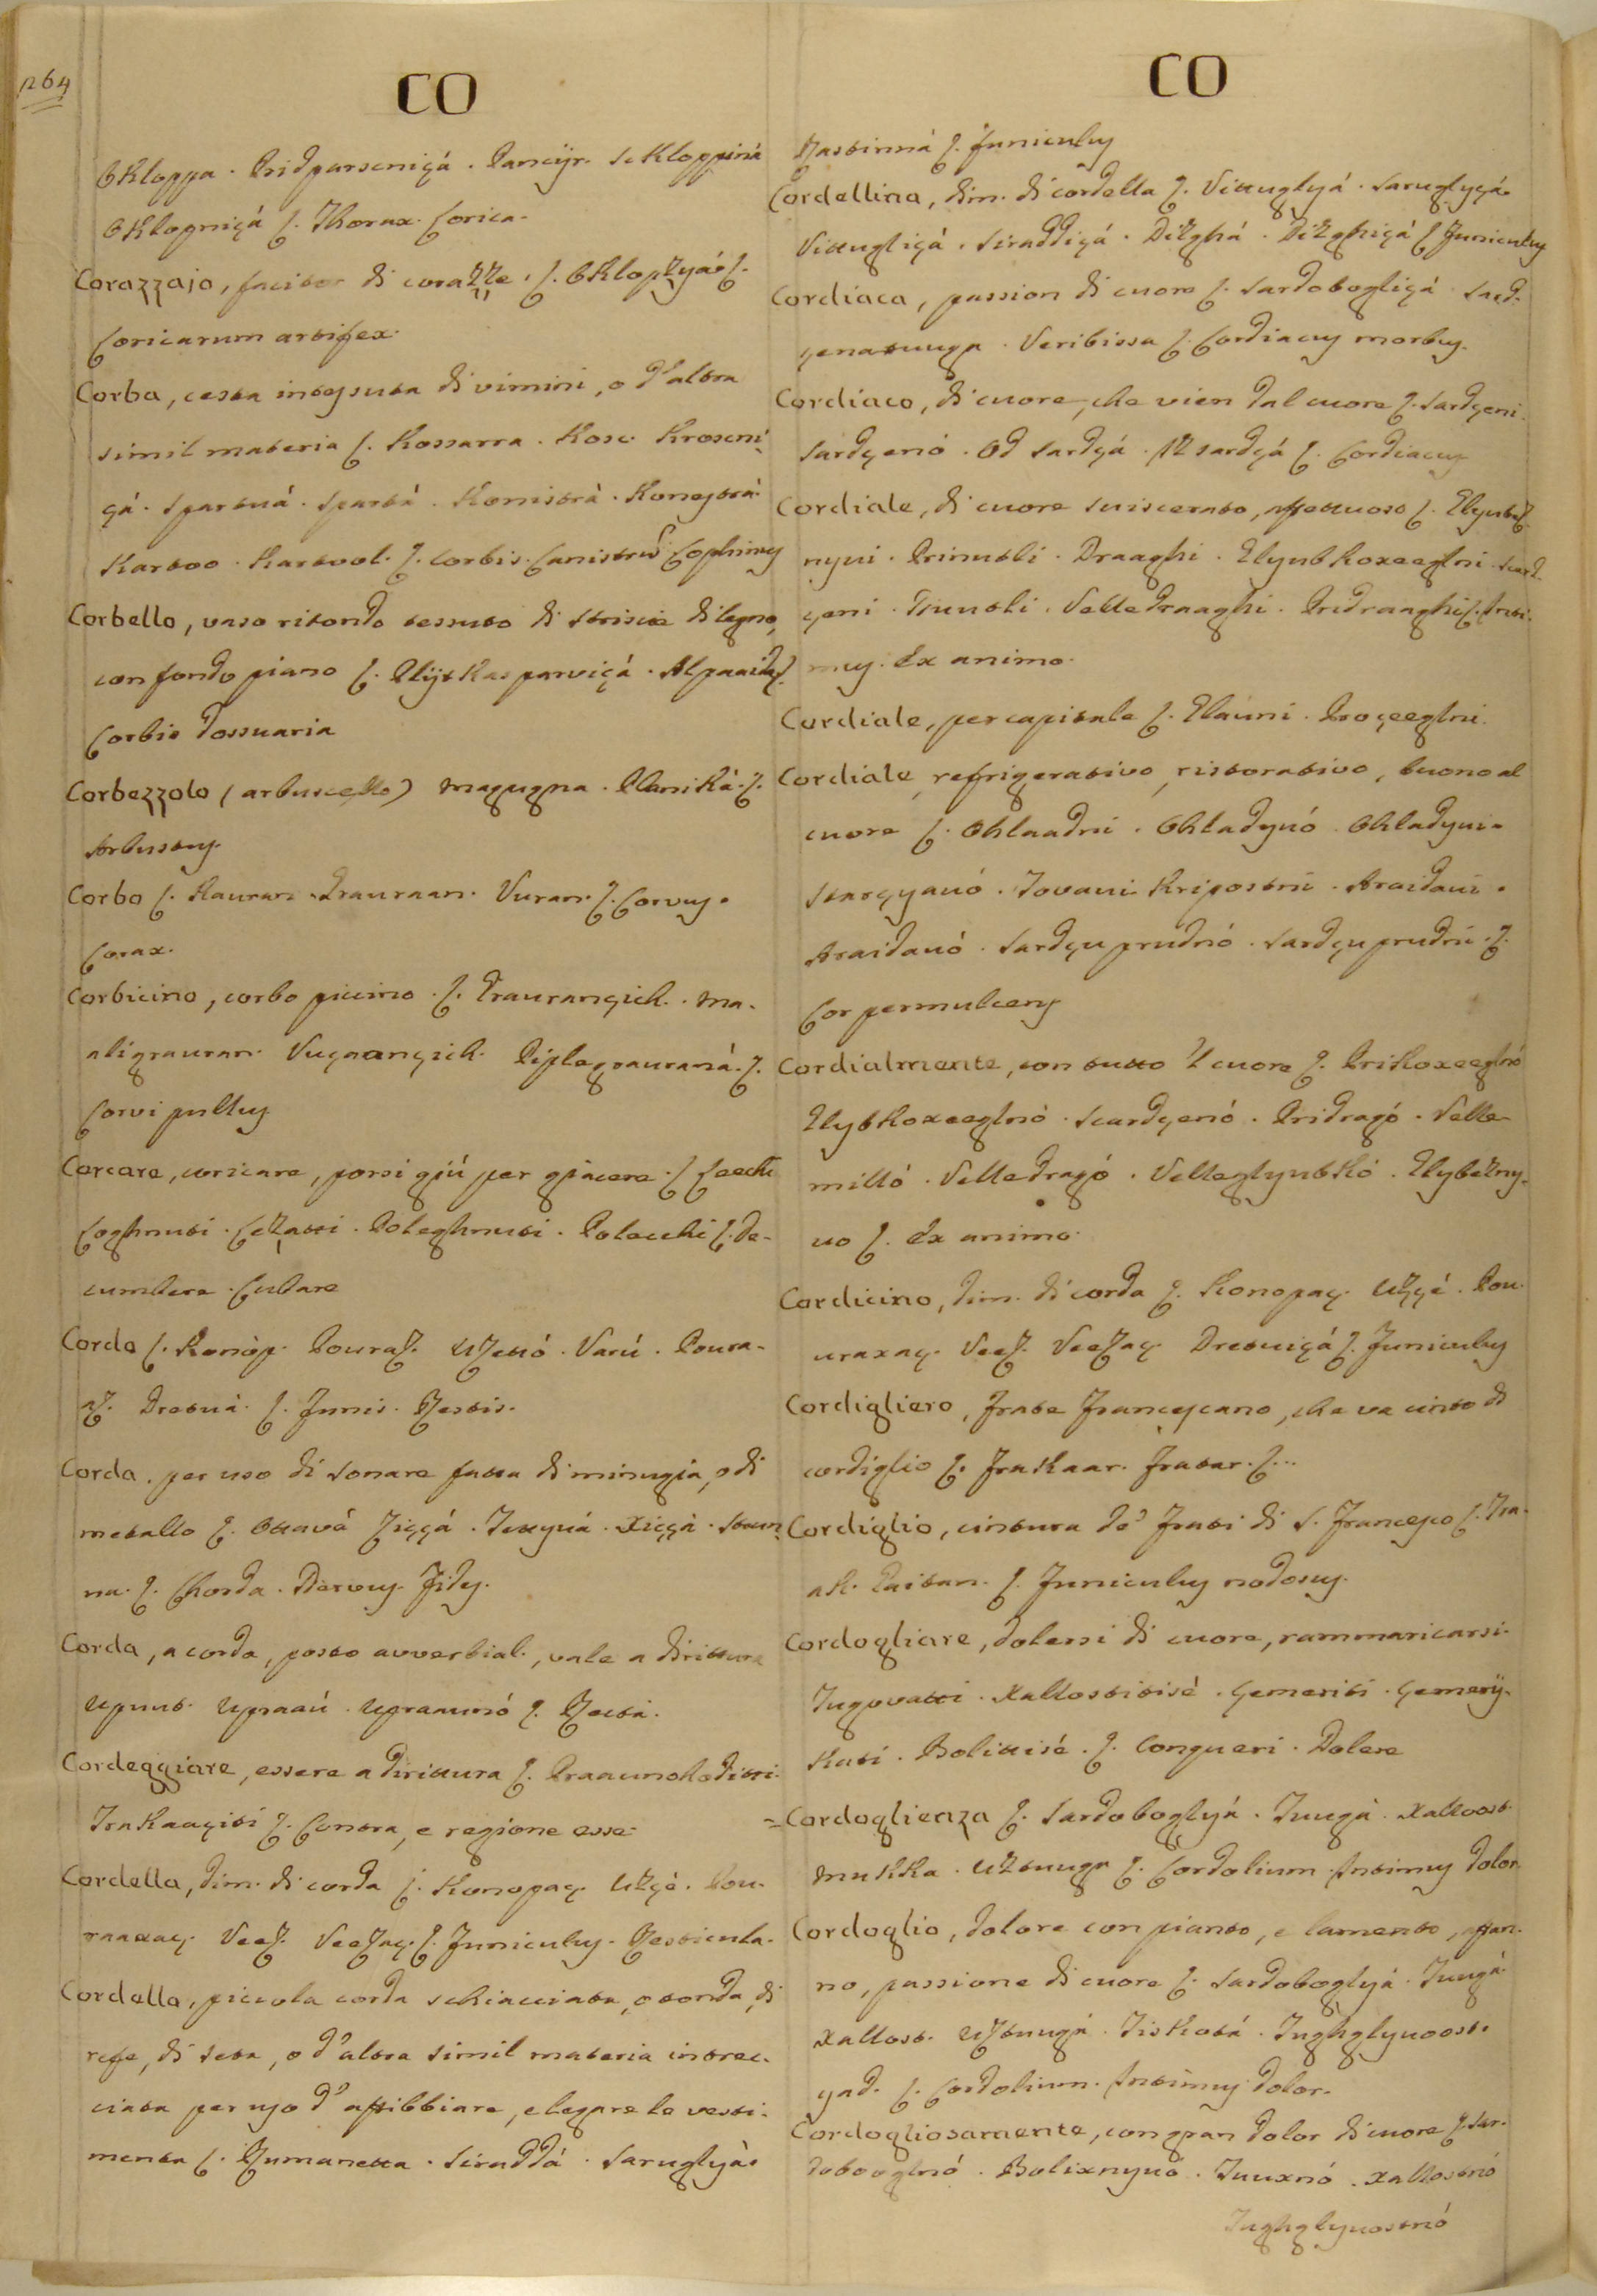 264
CO
Okloppa. Pridparscniçá. Pancijr. Skloppinà
Oklopniçá ſ. Thorax. Lorica.
Corazzajo, facitor di corazze. ſ. Oklopxyáo ſ.
Loricarum artifex.
Corba, cesta intessuta di vimini, o d'altra
simil materia ſ. Kossarra. Kosc. Kroscni-
çá. Spartuá. Spartá. Konistrà. Konestrà.
Kartoo. Kartool. ſ. Corbis. Canistrũ Cophinus
Corbello, vaso ritondo tessuto di striscie di legno,
con fondo piano ſ. Plijtkasparviçá.
Corbis dossuaria
Corbezzolo (arbuscello) Magugna. Planikà. ſ.
Arbustus.
Corbo ſ. Kauran. Grauraan. Vuran. ſ. Corvus.
Corax.
Corbicino, corbo piccino. ſ. Graurançich. Ma-
aligrauran. Vugraançich. Piplegrauranà. ſ.
Corvi pullus
Corcare, coricare, porsi giú per giacere. ſ. Leechi
Leghnuti. Lexatti. Poleghnuti. Polecchi ſ. De-
cumbere. Cubare
Corda ſ. Konòp. Pouraz. Uzettó. Varú. Poura-
az. Dretuá. ſ. Funis. Restis.
Corda, per uso di sonare fatta di minugia, o di
metallo ſ. Ottavá Ziççá. Tettyuá. Xiççà. Strun-
na. ſ. Chorda. Nervus. Fides.
Corda, a corda, posto avverbial., vale a dirittura
uprut. upraaú. upraaunó ſ. Recta.
Cordeggiare, essere a dirittura ſ. Praaunohoditti.
Trakaaçiti ſ. Contra, e regione esse.
Cordella, dim. di corda ſ. Konopaç. Uzçé. Pou-
raaxaç. Veez. Veezaç. ſ. Funiculus. Resticula.
Cordella, piccola corda schiacciata, o tonda, di
refe, di seta, o d'altra simil materia intrec-
ciata per uso d'affibbiare, e legare le vesti-
menta ſ. Rumanetta. Siraddá. Saruglyào
CO
Rastinná ſ. Funiculus
Cordellina, dim. di cordella ſ. Vittuglyá. Saruglyçá.
Vittugliçá. Siraddiçá. Dizghá. Dizghiçá ſ. Funiculus
Cordiaca, passion di cuore ſ. Sardobogliçá. Sard-
çenatuuga. Veribissa ſ. Cordiacus morbus.
Cordiaco, di cuore, che vien dal cuore ſ. Sardçeni.
Sardçenó. Od sardçá. Iz sardçá ſ. Cordiacus.
Cordiale, di cuore sviscerato, affettuoso ſ.
nyui. Prinutli. Draaghi. Glyubkoxeeglni. Sard-
çeni. Velledraaghi. Pridraaghi ſ. Inti-
mus. Ex animo.
Cordiale, per capitale ſ. Glauni. Proçeeglni.
Cordiale, refrigerativo, ristorativo, buono al
cuore ſ. Ohlaadni. Ohladyuó. Ohladyui.
Starçyauó. Tovaui. Kripostni. Araidaui.
Araidauó. Sardçuprudnó. Sardçuprudni. ſ.
Cor permulcens
Cordialmente, con tutto 'l cuore ſ. Prikoxeeglnó
Glybkoxeeglnó. Scardçenó. Pridragó. Velle-
milló. Velledragó. Velleglyubkó. Glybezny-
uo ſ. Ex animo.
Cordicino, dim. di corda ſ. Konopaç. Uzçé. Pou-
uraxaç. Veez. Veezaç. Dretuiçá ſ. Funiculus
Cordigliero, frate Francescano, che va cinto di
cordiglio ſ. Fratkaar. Fratar. ſ...
Cordiglio, cintura de' frati di S. Francesco ſ. Tra-
ak. Paitan. ſ. Funiculus nodosus.
Cordogliare, dolersi di cuore, rammaricarsi.
Tugovatti. Xallostitisè. Çemeriti. Çemerij-
kati. Bolittisé. ſ. Conqueri. Dolere
Cordoglienza ſ. Sardoboglyá. Tuugà. Xalloost.
Mukka. Uztuuga ſ. Cordolium. Intimus dolor.
Cordoglio, dolore con pianto, e lamento, affan-
no, passione di cuore ſ. Sardoboglyá. Tuugá.
Xallost. Uztuugá. Tiskotá. Tughglyuoost.
yad. ſ. Cordolium. Intimus dolor.
Cordogliosamente, con gran dolor di cuore ſ. Sar-
dobooglnó. Bolixnyuó. Tuuxnó. Xallostnó
Tughglyuostnó